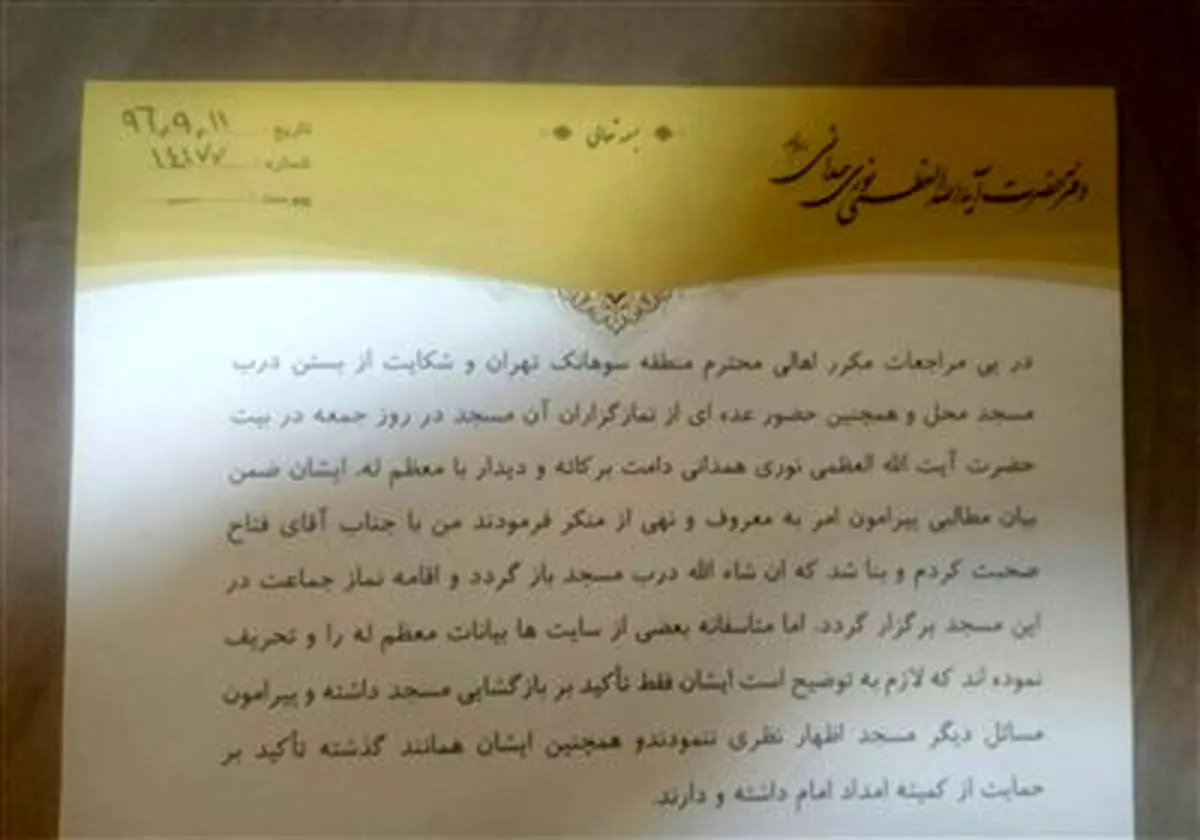 دفتر حضرت آیة الله العظمی نوری همدانی
بسمه تعالی
تاریخ ۹۶٫۹٫۱۱
شماره ۱۴۲۷۷
پیوست
در پی مراجعات مکرر اهالی محترم منطقه سوهانک تهران و شکایت از بستن درب
مسجد محل و همچنین حضور عده ای از نمازگزاران آن مسجد در روز جمعه در بیت
حضرت آیت الله العظمی نوری همدانی دامت برکاته و دیدار با معظم له، ایشان ضمن
بیان مطالبی پیرامون امر به معروف و نهی از منکر فرمودند من با جناب آقای فتاح
صحبت کردم و بنا شد که ان شاء الله درب مسجد باز گردد و اقامه نماز جماعت در
این مسجد برگزار گردد. اما متاسفانه بعضی از سایت ها بیانات معظم له را و تحریف
نموده اند که لازم به توضیح است ایشان فقط تأکید بر بازگشایی مسجد داشته و پیرامون
مسائل دیگر مسجد اظهار نظری ننمودندو همچنین ایشان همانند گذشته تأکید بر
حمایت از کمیته امداد امام داشته و دارند.